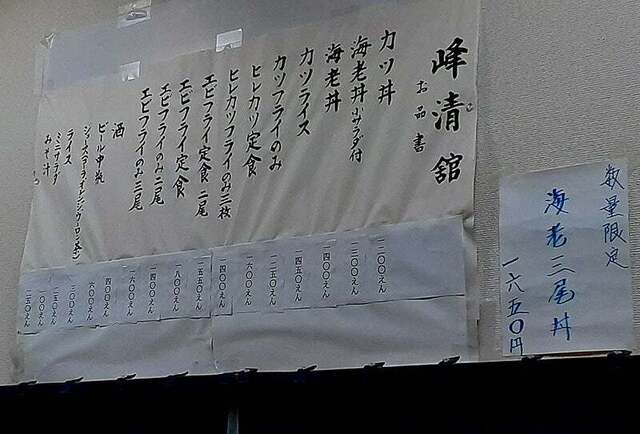 峰清舘
お品書
カツ丼
海老丼 小サラダ付
海老丼
カツライス
カツフライのみ
ヒレカツ定食
ヒレカツフライのみ三枚
エビフライ定食 二尾
エビフライ定食
エビフライのみ二尾
エビフライのみ三尾
酒
ビール中瓶
ライス
ミニサラダ
みそ汁
一四〇〇えん
一四五〇えん
一六〇〇えん
一四〇〇えん
一五五〇えん
一八〇〇えん
一四〇〇えん
一六〇〇えん
四〇〇えん
六〇〇えん
三〇〇えん
二五〇えん
一〇〇えん
数量限定
海老三尾丼
一六五〇円